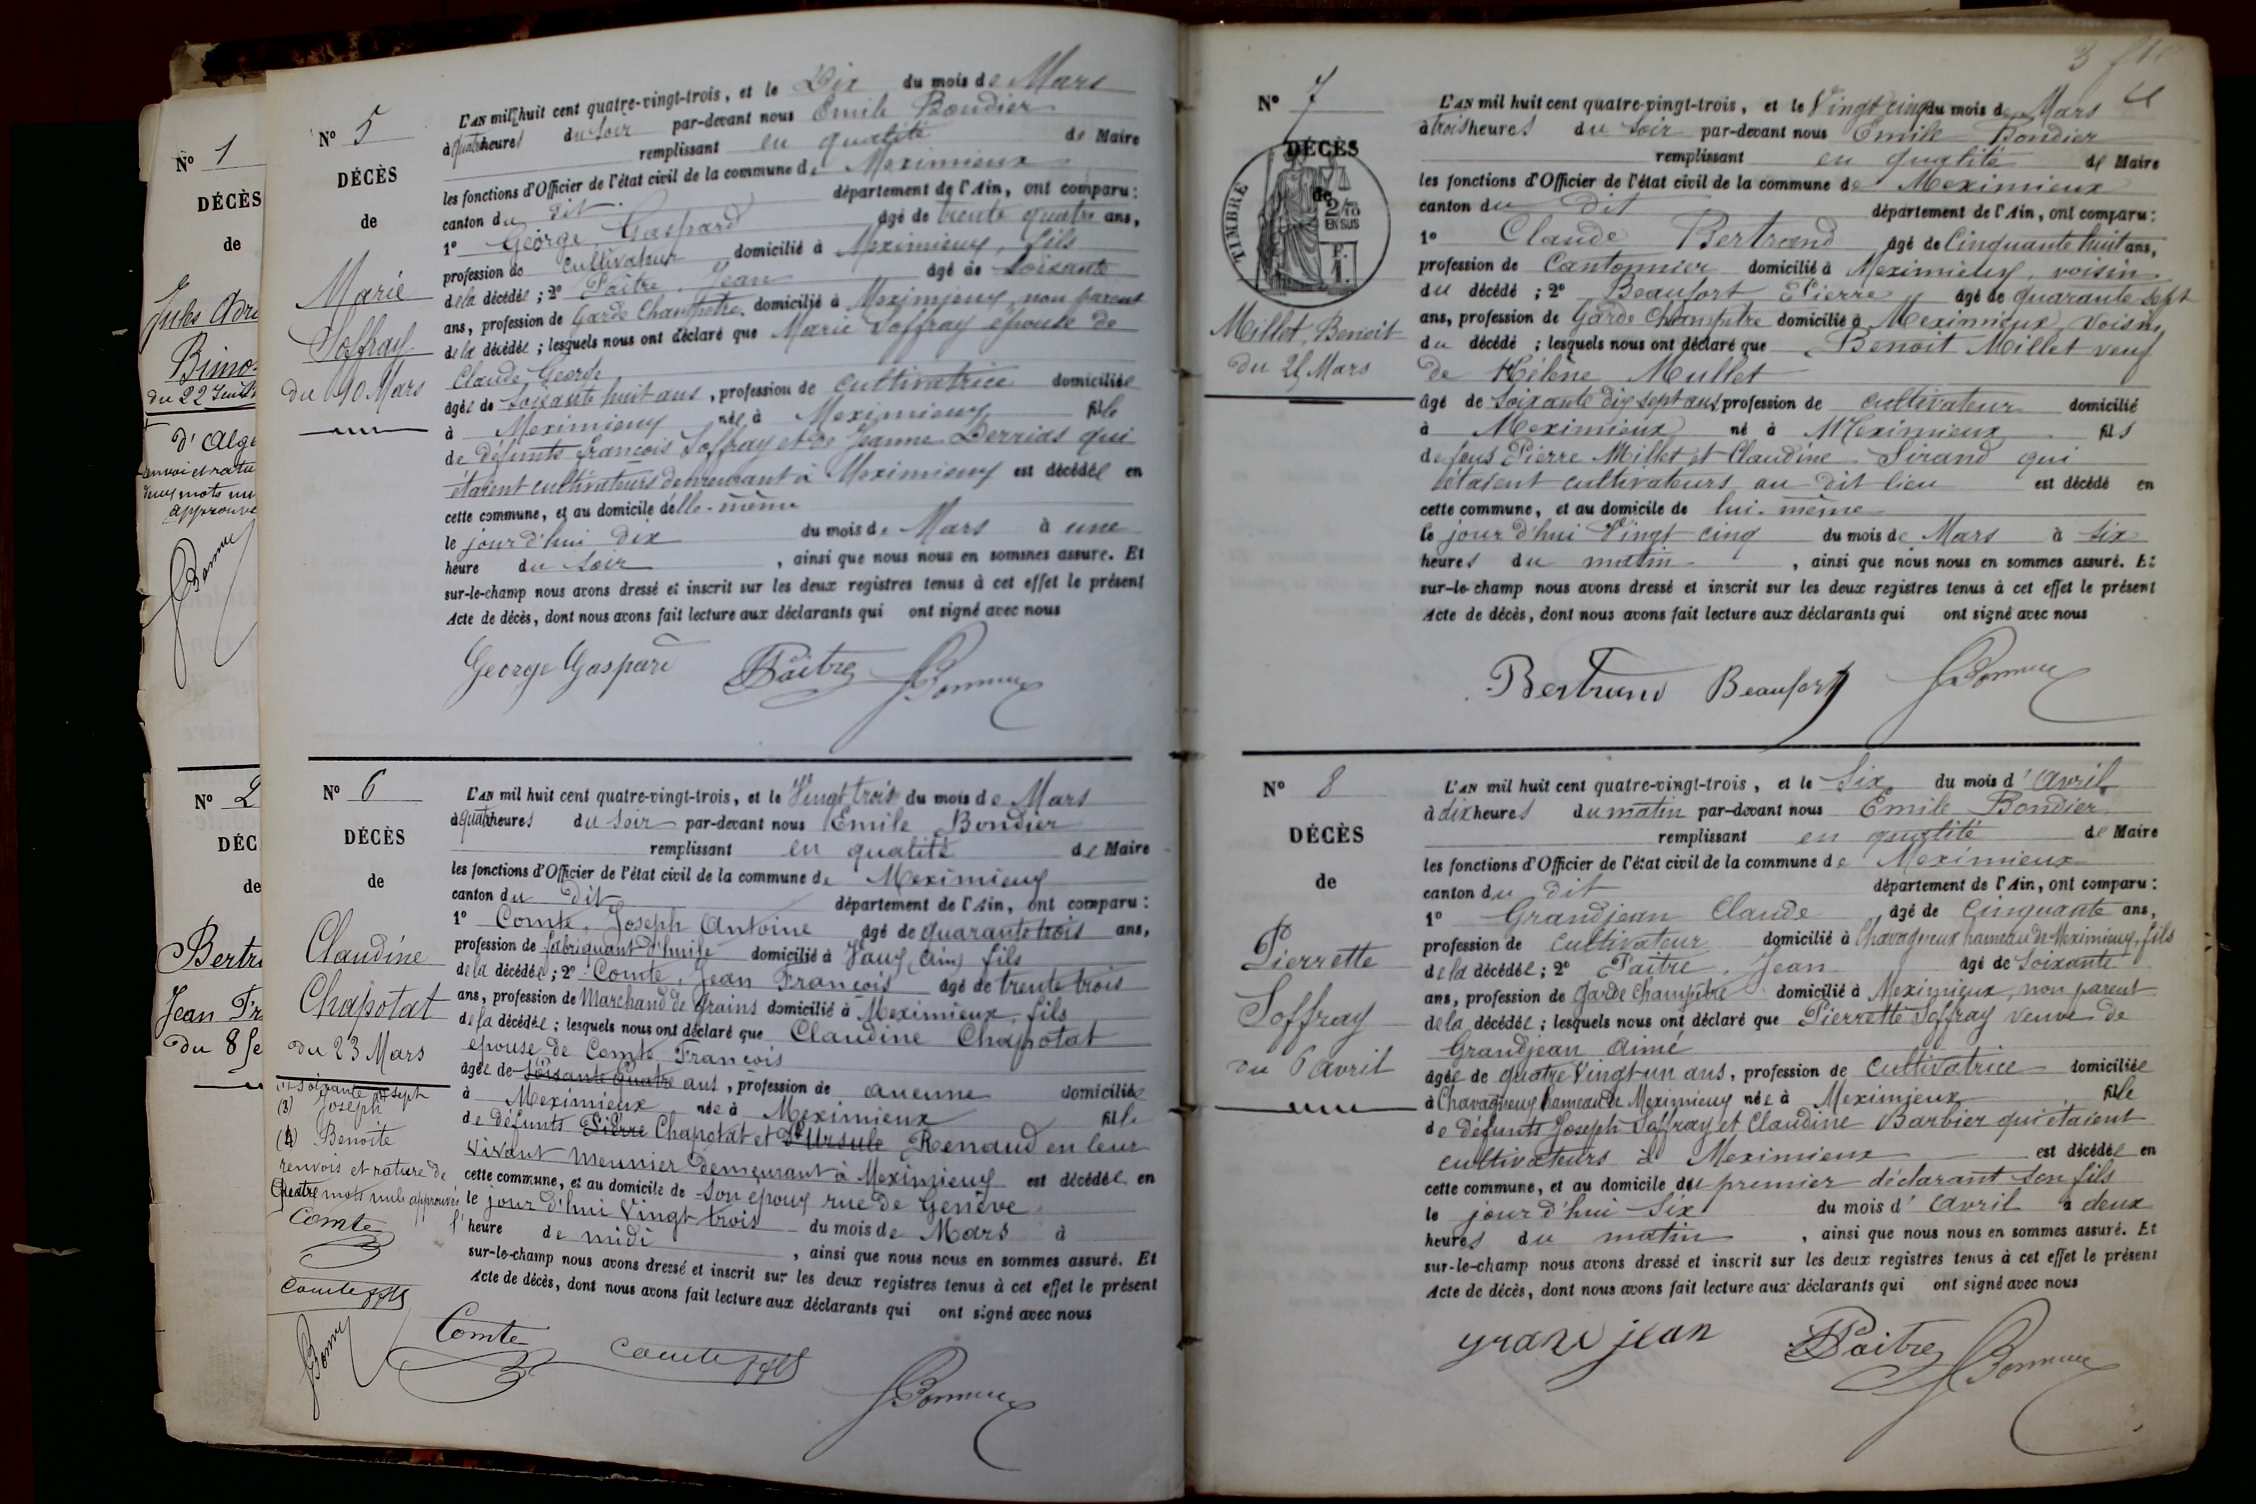 Nº 1
DÉCÈS
de
du 22
Nº 2
de
Jean
du 8
Nº 5
DÉCÈS
de
Marie
Soffray
du 10 Mars
L'AN mil huit cent quatre-vingt-trois, et le Dix du mois de Mars
à quatre heures du soir par-devant nous Emile Bondier
remplissant en qualité de Maire
les fonctions d'Officier de l'état civil de la commune de Meximieux
canton du dit département de l'Ain, ont comparu :
1º George Gaspard âgé de trente quatre ans,
profession de cultivateur domicilié à Meximieux, fils
de la décédée ; 2º Paitre, Jean âgé de soixante
ans, profession de Garde Champêtre domicilié à Meximieux, non parent
de la décédée ; lesquels nous ont déclaré que Marie Soffray épouse de
Claude George
âgée de soixante huit ans, profession de cultivatrice domiciliée
à Meximieux née à Meximieux fille
de défunts François Soffray et de Jeanne qui
étaient cultivateurs demeurant à Meximieux est décédée en
cette commune, et au domicile d'elle-même
le jour d'hui dix du mois de Mars à une
heure du soir , ainsi que nous nous en sommes assuré. Et
sur-le-champ nous avons dressé et inscrit sur les deux registres tenus à cet effet le présent
Acte de décès, dont nous avons fait lecture aux déclarants qui ont signé avec nous
George Gaspard Paitre
Nº 6
DÉCÈS
de
Claudine
Chapotat
du 23 Mars
soixante sept
Joseph
Benoite
renvois et rature de
quatre mots nuls approuvés
Comte
Comte fils
L'AN mil huit cent quatre-vingt-trois, et le Vingt trois du mois de Mars
à quatre heures du soir par-devant nous Emile Bondier
remplissant en qualité de Maire
les fonctions d'Officier de l'état civil de la commune de Meximieux
canton du dit département de l'Ain, ont comparu :
1º Comte, Joseph Antoine âgé de quarante trois ans,
profession de fabriquant d'huile domicilié à Vaux (Ain) fils
de la décédée ; 2º Comte, Jean François âgé de trente trois
ans, profession de Marchand de grains domicilié à Meximieux, fils
de la décédée ; lesquels nous ont déclaré que Claudine Chapotat
épouse de Comte François
âgée de soixante quatre ans, profession de aucune domiciliée
à Meximieux née à Meximieux fille
de défunts Pierre Chapotat et Ursule Renaud en leur
vivant meunier demeurant à Meximieux est décédée en
cette commune, et au domicile de son époux rue de Genève
le jour d'hui Vingt trois du mois de Mars à
l'heure de midi , ainsi que nous nous en sommes assuré. Et
sur-le-champ nous avons dressé et inscrit sur les deux registres tenus à cet effet le présent
Acte de décès, dont nous avons fait lecture aux déclarants qui ont signé avec nous
Comte Comte fils
Nº 7
DÉCÈS
de
TIMBRE
2/10
EN SUS
Millet, Benoit
du 25 Mars
L'AN mil huit cent quatre-vingt-trois, et le Vingt cinq du mois de Mars
à trois heures du soir par-devant nous Emile Bondier
remplissant en qualité de Maire
les fonctions d'Officier de l'état civil de la commune de Meximieux
canton du dit département de l'Ain, ont comparu :
1º Claude Bertrand âgé de Cinquante huit ans,
profession de Cantonnier domicilié à Meximieux, voisin
du décédé ; 2º Beaufort Pierre âgé de quarante sept
ans, profession de Garde Champêtre domicilié à Meximieux, voisin
du décédé ; lesquels nous ont déclaré que Benoit Millet veuf
de Hélène Mullet
âgé de soixante dix sept ans, profession de cultivateur domicilié
à Meximieux né à Meximieux fils
de feus Pierre Millet et Claudine Sirand qui
étaient cultivateurs au dit lieu est décédé en
cette commune, et au domicile de lui-même
le jour d'hui Vingt cinq du mois de Mars à six
heures du matin , ainsi que nous nous en sommes assuré. Et
sur-le-champ nous avons dressé et inscrit sur les deux registres tenus à cet effet le présent
Acte de décès, dont nous avons fait lecture aux déclarants qui ont signé avec nous
Bertrand Beaufort
Nº 8
DÉCÈS
de
Pierrette
Soffray
du 6 avril
L'AN mil huit cent quatre-vingt-trois, et le Six du mois d'Avril
à dix heures du matin par-devant nous Emile Bondier
remplissant en qualité de Maire
les fonctions d'Officier de l'état civil de la commune de Meximieux
canton du dit département de l'Ain, ont comparu :
1º Grandjean Claude âgé de Cinquante ans,
profession de cultivateur domicilié à Chavagneux hameau de Meximieux, fils
de la décédée ; 2º Paitre, Jean âgé de soixante
ans, profession de Garde Champêtre domicilié à Meximieux, non parent
de la décédée ; lesquels nous ont déclaré que Pierrette Soffray veuve de
Grandjean Aimé
âgée de quatre vingt un ans, profession de cultivatrice domiciliée
à Chavagneux hameau de Meximieux née à Meximieux fille
de défunts Joseph Soffray et Claudine Barbier qui étaient
cultivateurs à Meximieux est décédée en
cette commune, et au domicile du premier déclarant son fils
le jour d'hui Six du mois d'Avril à deux
heures du matin , ainsi que nous nous en sommes assuré. Et
sur-le-champ nous avons dressé et inscrit sur les deux registres tenus à cet effet le présent
Acte de décès, dont nous avons fait lecture aux déclarants qui ont signé avec nous
grandjean Paitre